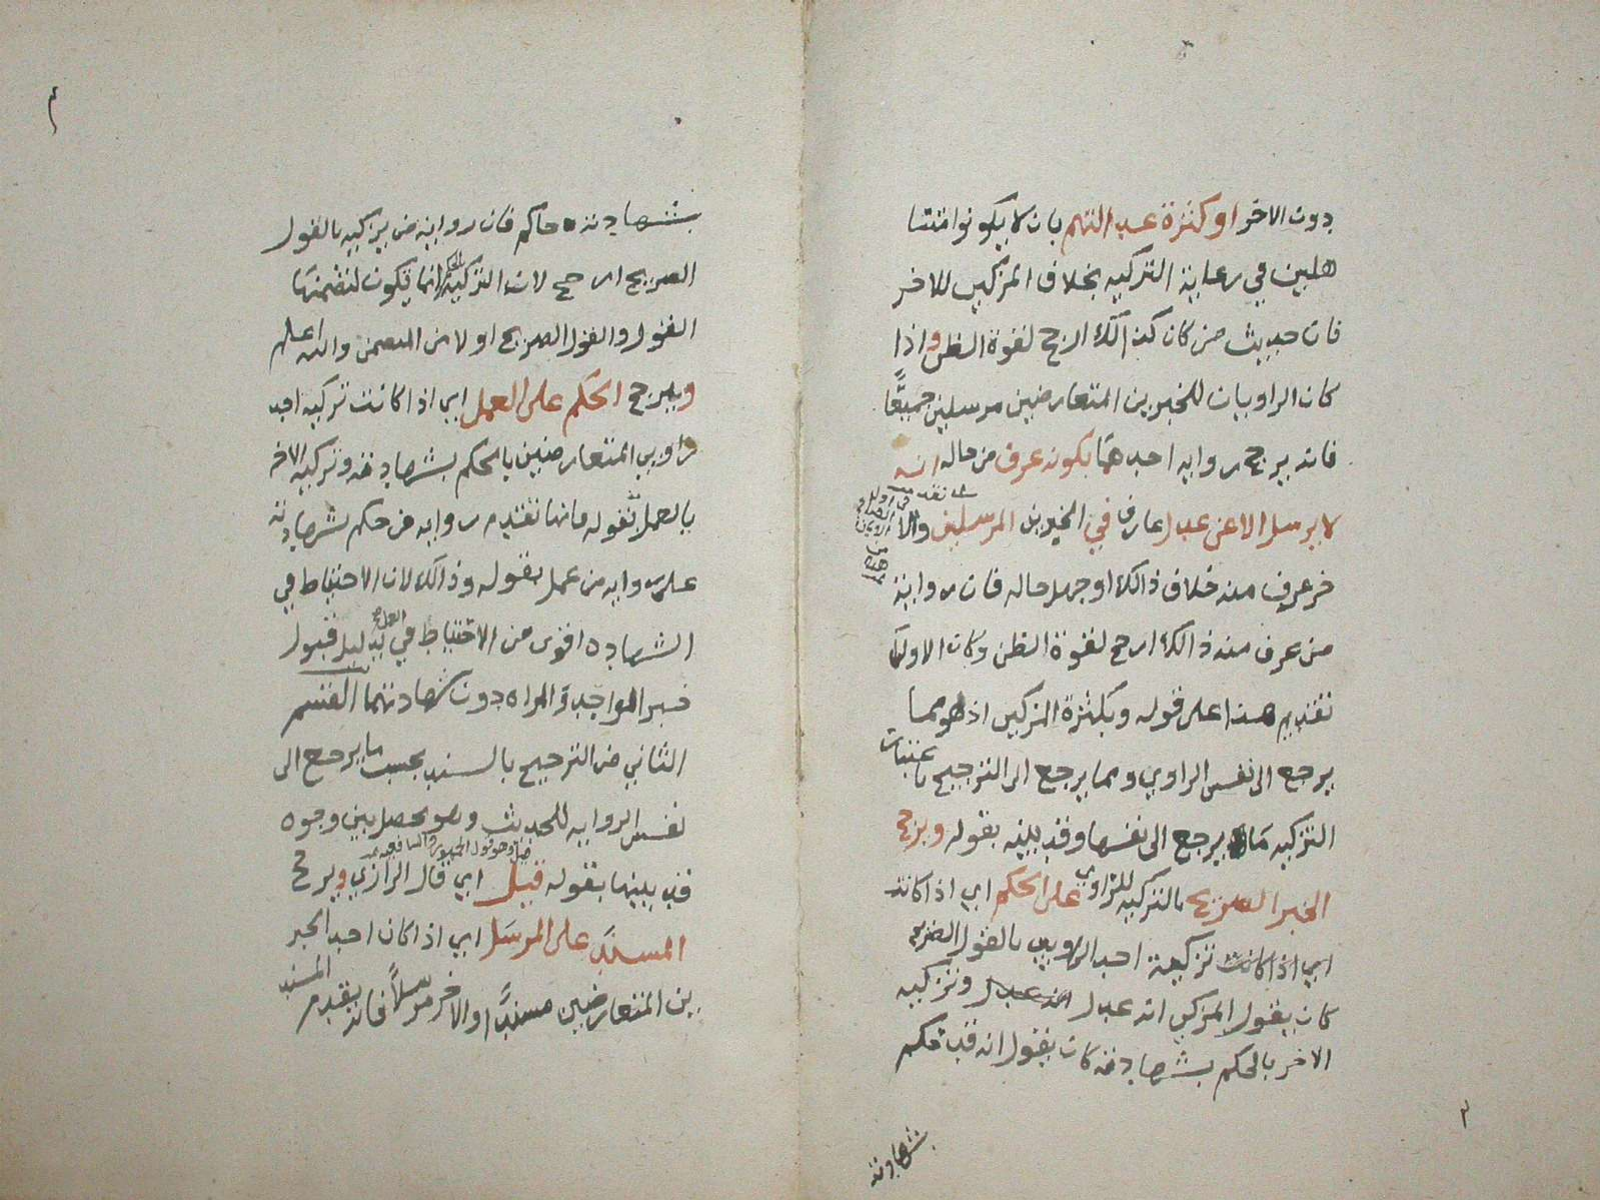 دون الاخر او كثرة عدالتهم بان لا يكونوا متسا
هلين في رعاية التزكيه بخلاف المزكين للاخر
فان حديث من كان كذالك ارجح لقوة الظن واذا
كان الراويان للخبرين المتعارضين مرسلين جميعًا
فانه يرجح روايه احدهما بكونه عرف من حاله انه
لا يرسل الا عن عدل عارف في الخبرين المرسلين والا
خر عرف منه خلاف ذالك او جهل حاله فان رواية
من عرف منه ذالك ارجح لقوة الظن وكان الاولى
تقديم هذا على قوله وبكثرة المزكين اذ هو مما
يرجع الى نفس الراوي ومما يرجع الى الترجيح باعتبار
التزكيه ما يرجع الى نفسها وقد بينه بقوله ويرجح
الخبر الصريح بالتزكيه للراوي على الحكم اي اذا كانت
اي اذا كانت تزكية احد الراويين بالقول الصريح
كان يقول المزكى انه عدل وتزكيه
الاخر بالحكم بشهادته كان يقول انه قد حكم
شهادته
بشهادته حاكم فان رواية من يزكيه بالقول
الصريح ارجح لان التزكيه بالحكم انما تكون لتضمنها
القول والقول الصريح اولا من المتضمن والله اعلم
ويرجح الحكم على العمل اي اذا كانت تزكيه احد
راويي المتعارضين بالحكم بشهادته وتزكيه الاخر
بالعمل بقوله فانها تقدم روايه من حكم بشهادته
على روايه من عمل بقوله وذالك لان الاحتياط في
الشهاده اقوى من الاحتياط في العمل بدليل قبول
خبر الواحد والمراه دون شهادتهما القسم
الثاني من الترجيح بالسند بحسب ما يرجع الى
نفس الروايه للحديث وهو يحصل بين وجوه
قد بينها بقوله قيل اي قال الرازي ويرجح
المسند على المرسل اي اذا كان احد الخبر
ين المتعارضين مسندًا والاخر مرسلاً فانه يقدم المسند